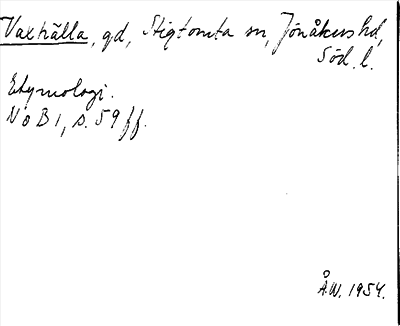 Vaxhälla, gd, Stigtomta sn, Jönåkers hd,
Söd. l.
Etymologi.
NoB 1, s. 59 ff.
Å.W. 1954.